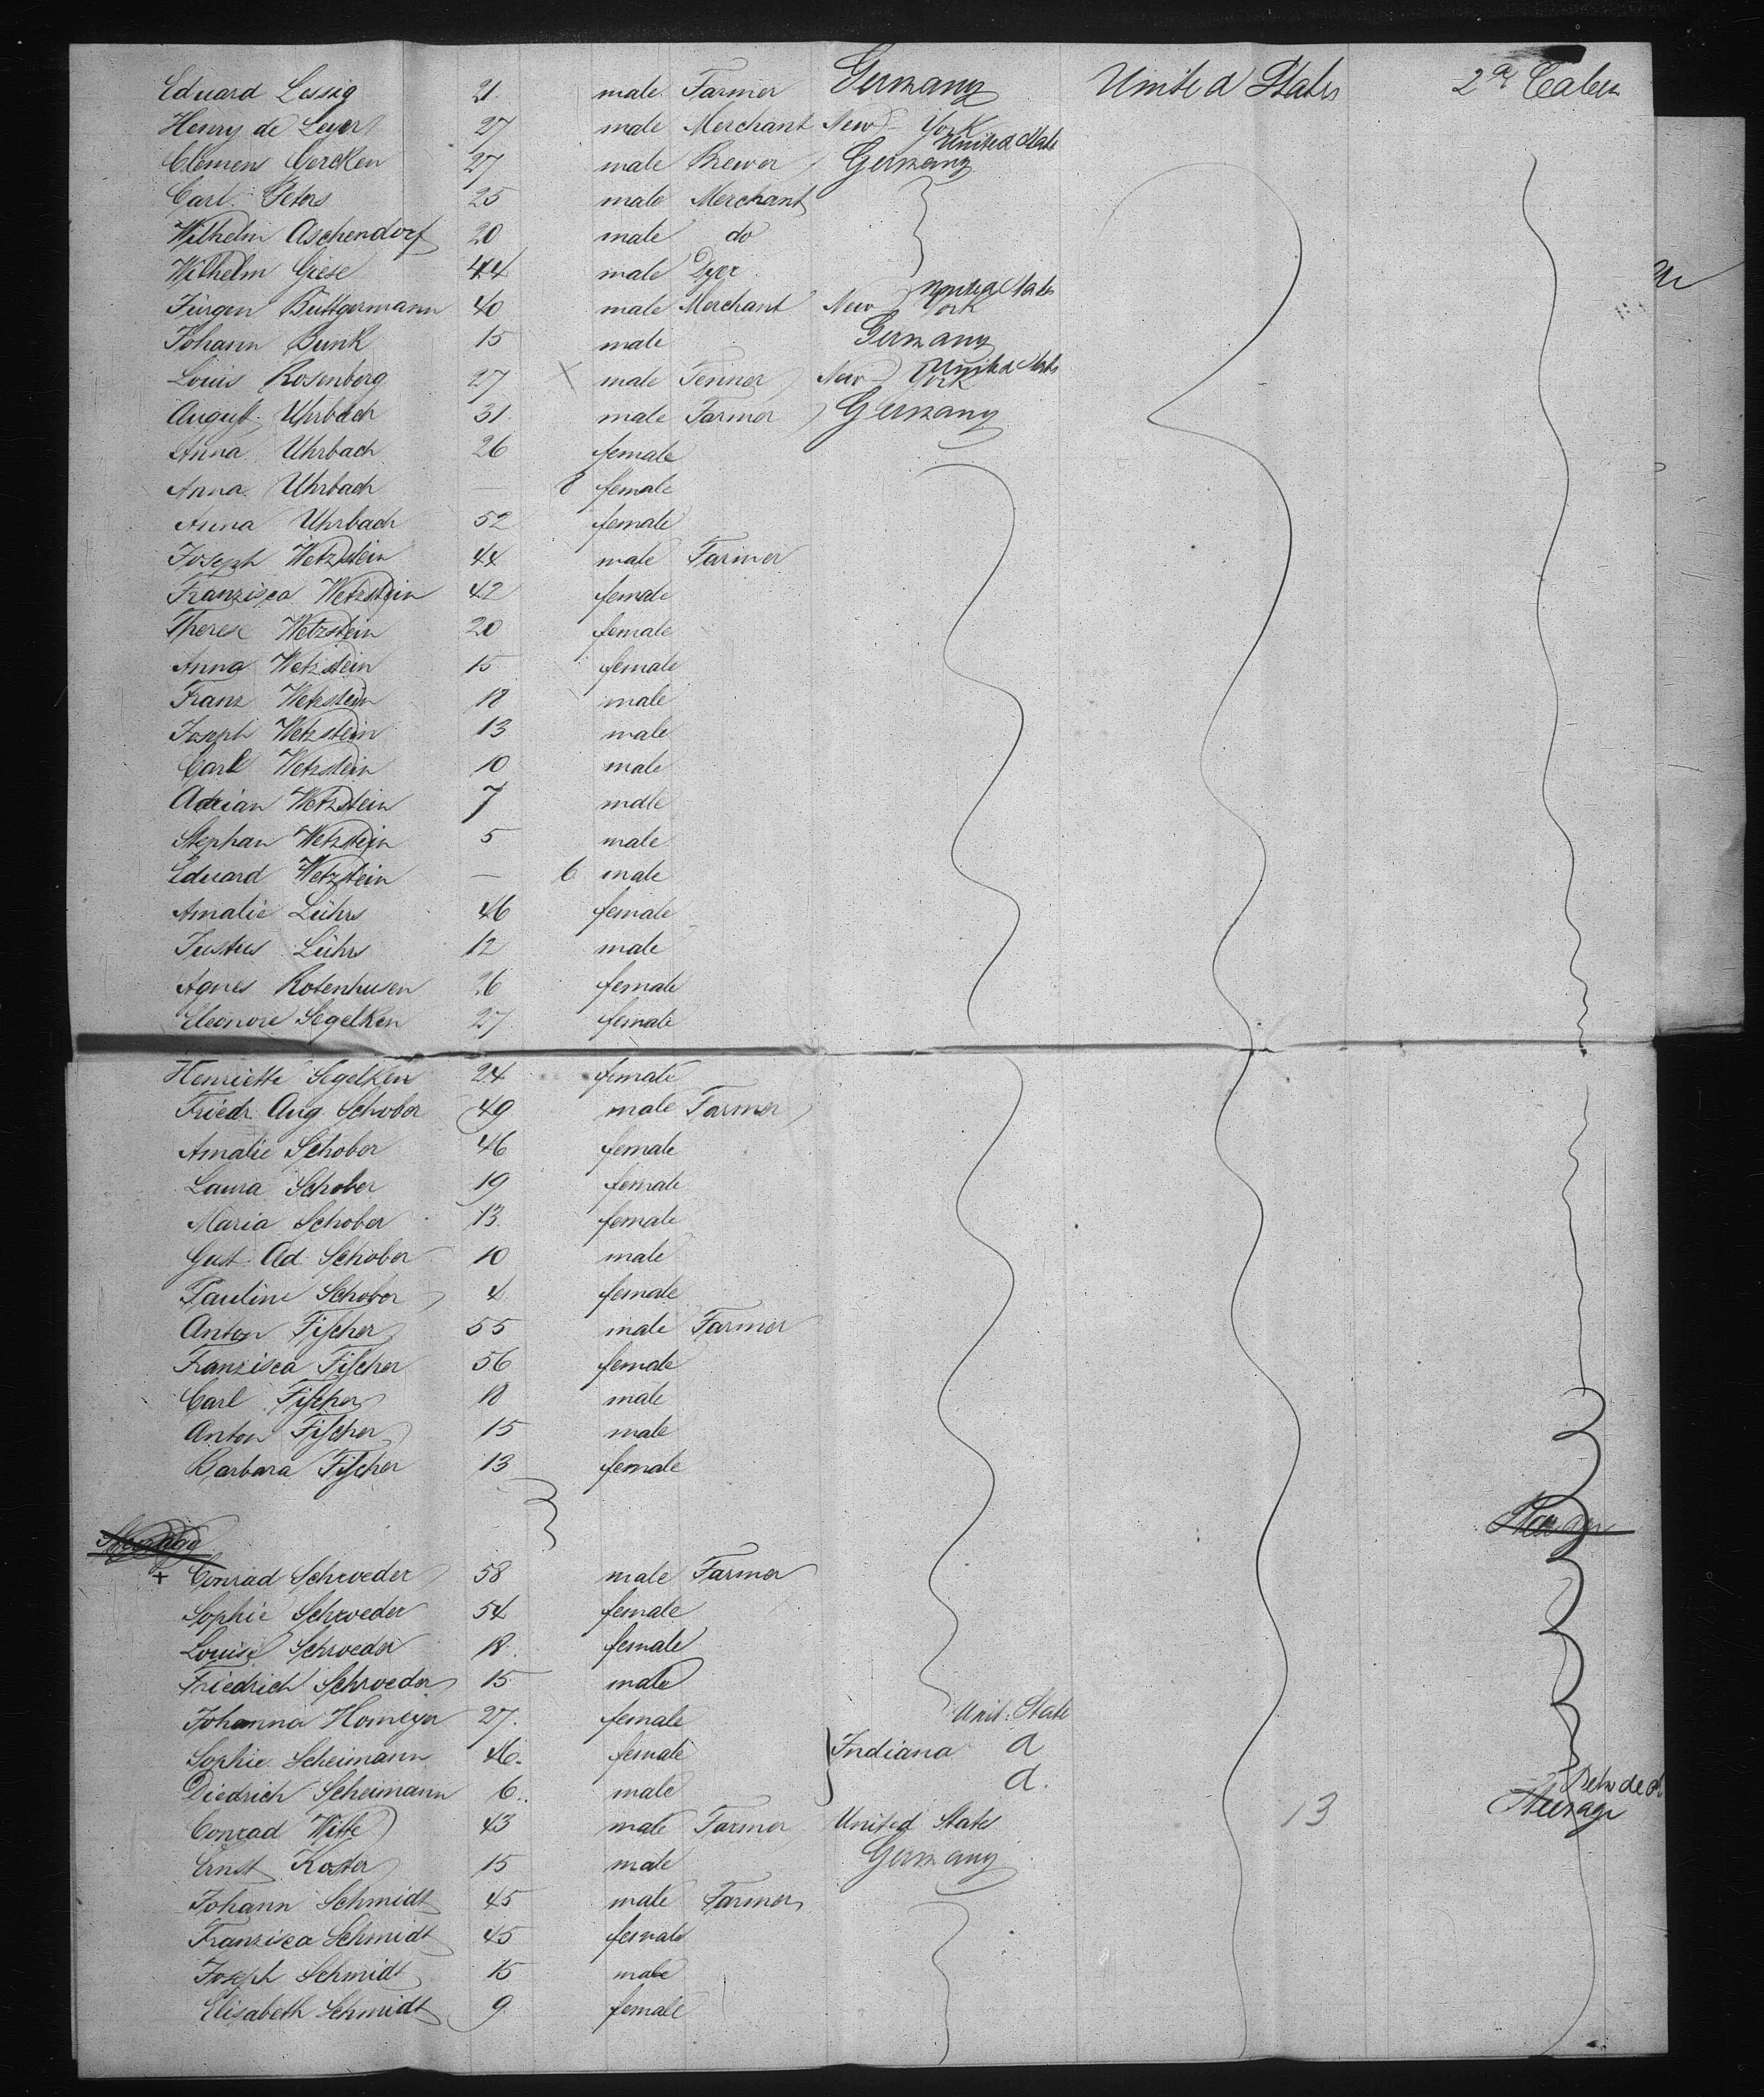 Eduard Lessig 21 male Farmer Germany United States 2d Cabin
Henry de Leyer 27 male Merchant New York United States
Clemens Oercken 27 male Brewer Germany
Carl Peters 25 male Merchant
Wilhelm Aschendorf 20 male do
Wilhelm Giese 44 male Dyer
Jürgen Büttgermann 40 male Merchant New York United States
Johann Bunk 15 male Germany
Louis Rosenberg 27 X male Tenner New York United States
August Uhrbach 31 male Farmer Germany
Anna Uhrbach 26 female
Anna Uhrbach — 8 female
Anna Uhrbach 52 female
Joseph Wetzstein 44 male Farmer
Franzisca Wetzstein 42 female
Therese Wetzstein 20 female
Anna Wetzstein 15 female
Franz Wetzstein 18 male
Joseph Wetzstein 13 male
Carl Wetzstein 10 male
Adrian Wetzstein 7 male
Stephan Wetzstein 5 male
Eduard Wetzstein — 6 male
Amalie Lührs 46 female
Justus Lührs 12 male
Agnes Rotenhusen 26 female
Eleonore Segelken 27 female
Henriette Segelken 24 female
Friedr. Aug. Schober 49 male Farmer
Amalie Schober 46 female
Laura Schober 19 female
Maria Schober 13 female
Gust. Ad. Schober 10 male
Pauline Schober 4 female
Anton Fischer 55 male Farmer
Franzisca Fischer 56 female
Carl Fischer 18 male
Anton Fischer 15 male
Barbara Fischer 13 female
+ Conrad Schroeder 58 male Farmer
Sophie Schroeder 54 female
Louise Schroeder 18 female
Friedrich Schroeder 15 male
Johanna Homeyer 27. female Unit. State
Sophie Scheimann 46. female Indiana d
Diedrich Scheimann 6. male d.
Conrad Witte 43 male Farmer United States 13 Steerage
Ernst Koster 15 male Germany
Johann Schmidt 45 male Farmer
Franzisca Schmidt 45 female
Joseph Schmidt 15 male
Elisabeth Schmidt 9 female